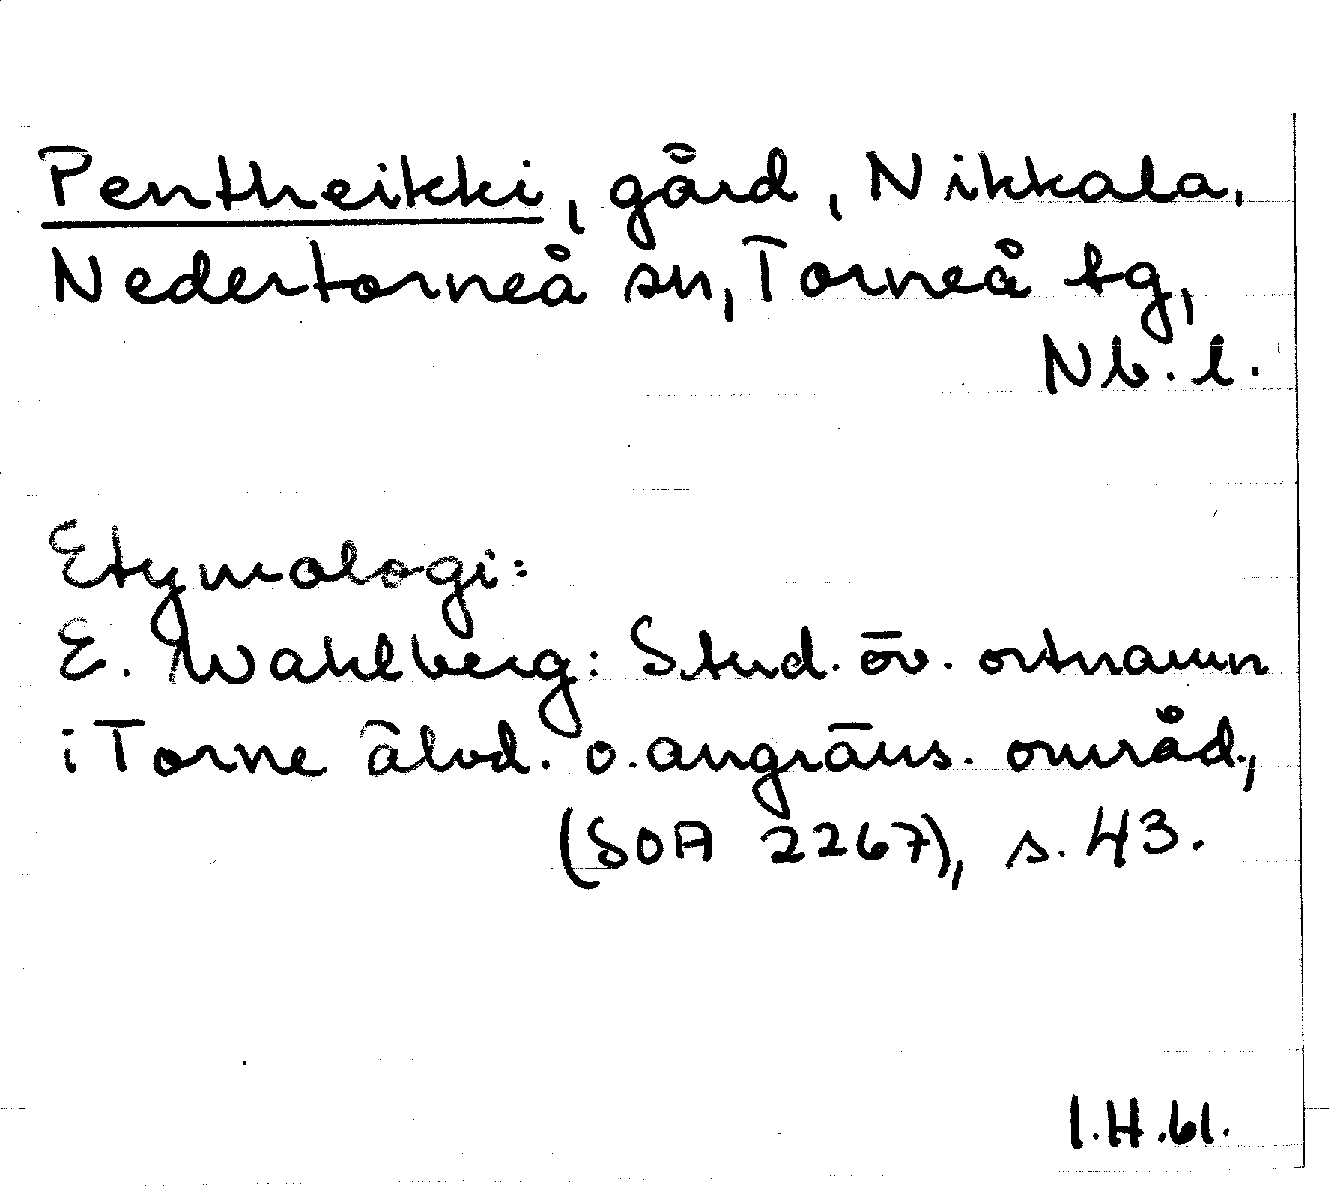 Pentheikki, gård, Nikkala,
Nedertorneå sn, Torneå tg,
Nb. l.
Etymologi:
E. Wahlberg: Stud. öv. ortnamn
i Torne älvd. o. angräns. områd.,
(SOA 2267), s. 43.
I.H.61.